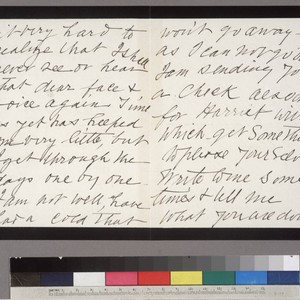 it very hard to
realize that I shall
never see or hear
that dear face &
voice again. Time
as yet has helped
me very little, but
I get through the
days one by one
I am not well, have
had a cold that
won't go away —
as I can not go o
I am sending yo
a check also
for Harriet
which get Someth
to please yourselves
Write to me Some
times & tell me
what you are doin